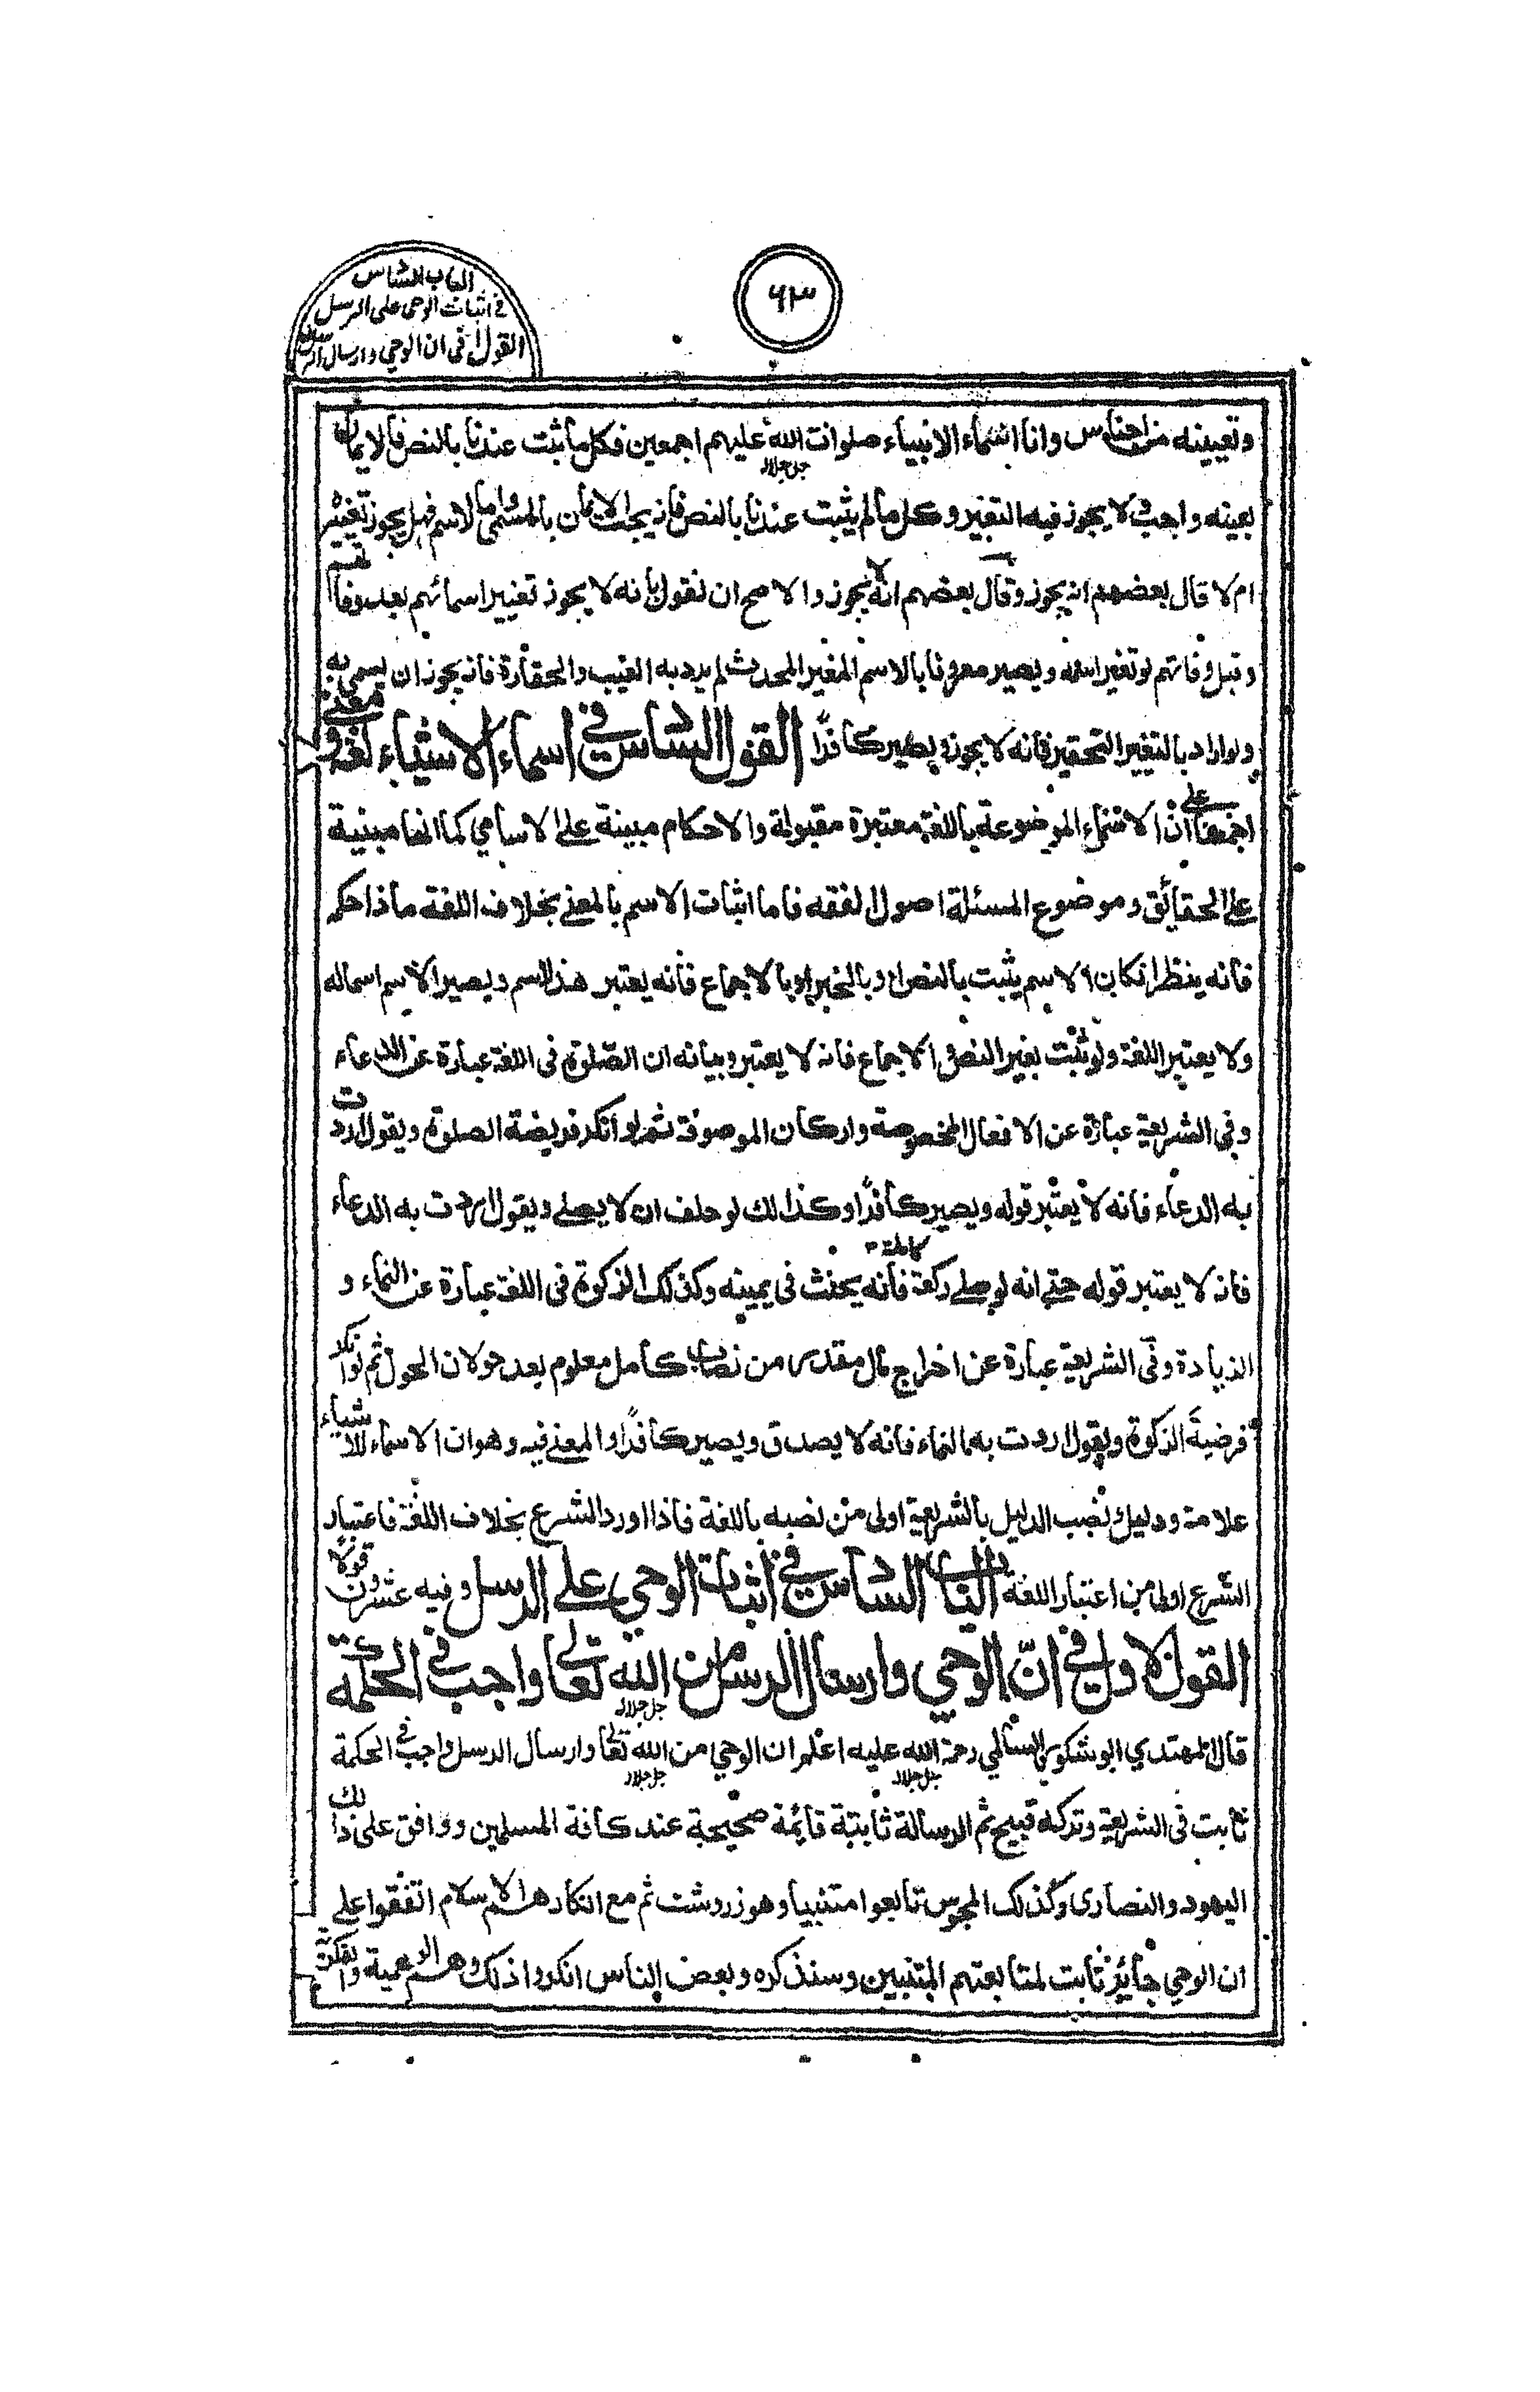 الباب السادس
في اثبات الوحي على الرسل
القول ا في ان الوحي وارسال الرسل
٦٣
وتعيينه من اجناس وانا اسماء الانبياء صلوات الله عليهم اجمعين فكل ما ثبت عندنا بالنص فالايمان
جل جلاله
بعينه واجب لا يجوز فيه التغير وكل ما لم يثبت عندنا بالنص فانه يجب الايمان بالمسمى واما الاسم فهل يجوز تغييره
ام لا قال بعضهم انه يجوز وقال بعضهم انه لا يجوز والاصح ان نقول بانه لا يجوز تغيير اسمائهم بعد وفاتهم
وقبل وفاتهم لو تغير اسمه ويصير معروفا بالاسم المغير المحدث لم يرد به العيب والحقارة فانه يجوز ان يسمى به
ولو اراد بالتغيير التحقير فانه لا يجوز ويصير كافرًا القول السادس في اسماء الاشياء لغة ومعنى
اجمعنا على ان الاسماء الموضوعة باللغة معتبرة مقبولة والاحكام مبينة على الاسامي كما انها مبنية
على الحقائق وموضوع المسئلة اصول الفقه فاما اثبات الاسم بالمعنى بخلاف اللغة ماذا حكمه
فانه ينظر انكان الاسم يثبت بالنص او بالخبر او بالاجماع فانه يعتبر هذا الاسم ويصير الاسم اسما له
ولا يعتبر اللغة ولو ثبت بغير النص والاجماع فانه لا يعتبر وبيانه ان الصلوة في اللغة عبارة عن الدعاء
وفي الشريعة عبارة عن الافعال المخصوصة واركان الموصوفة ثم لو انكر فريضة الصلوة ويقول اردت
به الدعاء فانه لا يعتبر قوله ويصير كافرًا وكذلك لو حلف ان لا يصلي ويقول اردت به الدعاء
كاملة
فانه لا يعتبر قوله حتى انه لو صلى ركعة فانه يحنث في يمينه وكذلك الزكوة في اللغة عبارة عن النماء و
الزيادة وفي الشريعة عبارة عن اخراج مال مقدر من نصاب كامل معلوم بعد حولان الحول ثم لو انكر
فرضية الزكوة ويقول اردت به النماء فانه لا يصدق ويصير كافرًا والمعنى فيه وهو ان الاسماء للاشياء
علامة ودليل ونصب الدليل بالشريعة اولى من نصبه باللغة فاذا اورد الشرع بخلاف اللغة فاعتبار
الشرع اولى من اعتبار اللغة الباب السادس في اثبات الوحي على الرسل وفيه عشرون قولًا
القول الاول في انّ الوحي وارسال الرسل من الله تعالى واجب في الحكمة
جل جلاله
قال المهتدي ابو شكور السالمي رحمة الله عليه اعلم ان الوحي من الله تعالى وارسال الرسل واجب في الحكمة
جل جلاله جل جلاله
ثابت في الشريعة وتركه قبيح ثم الرسالة ثابتة قايمة صحيحة عند كافة المسلمين ووافق على ذلك
اليهود والنصارى وكذلك المجوس تابعوا متنبيا وهو زردشت ثم مع انكارهم الاسلام اتفقوا على
ان الوحي جائز ثابت لمتابعتهم المتنبين وسنذكره وبعض الناس انكروا ذلك وهم الوهمية